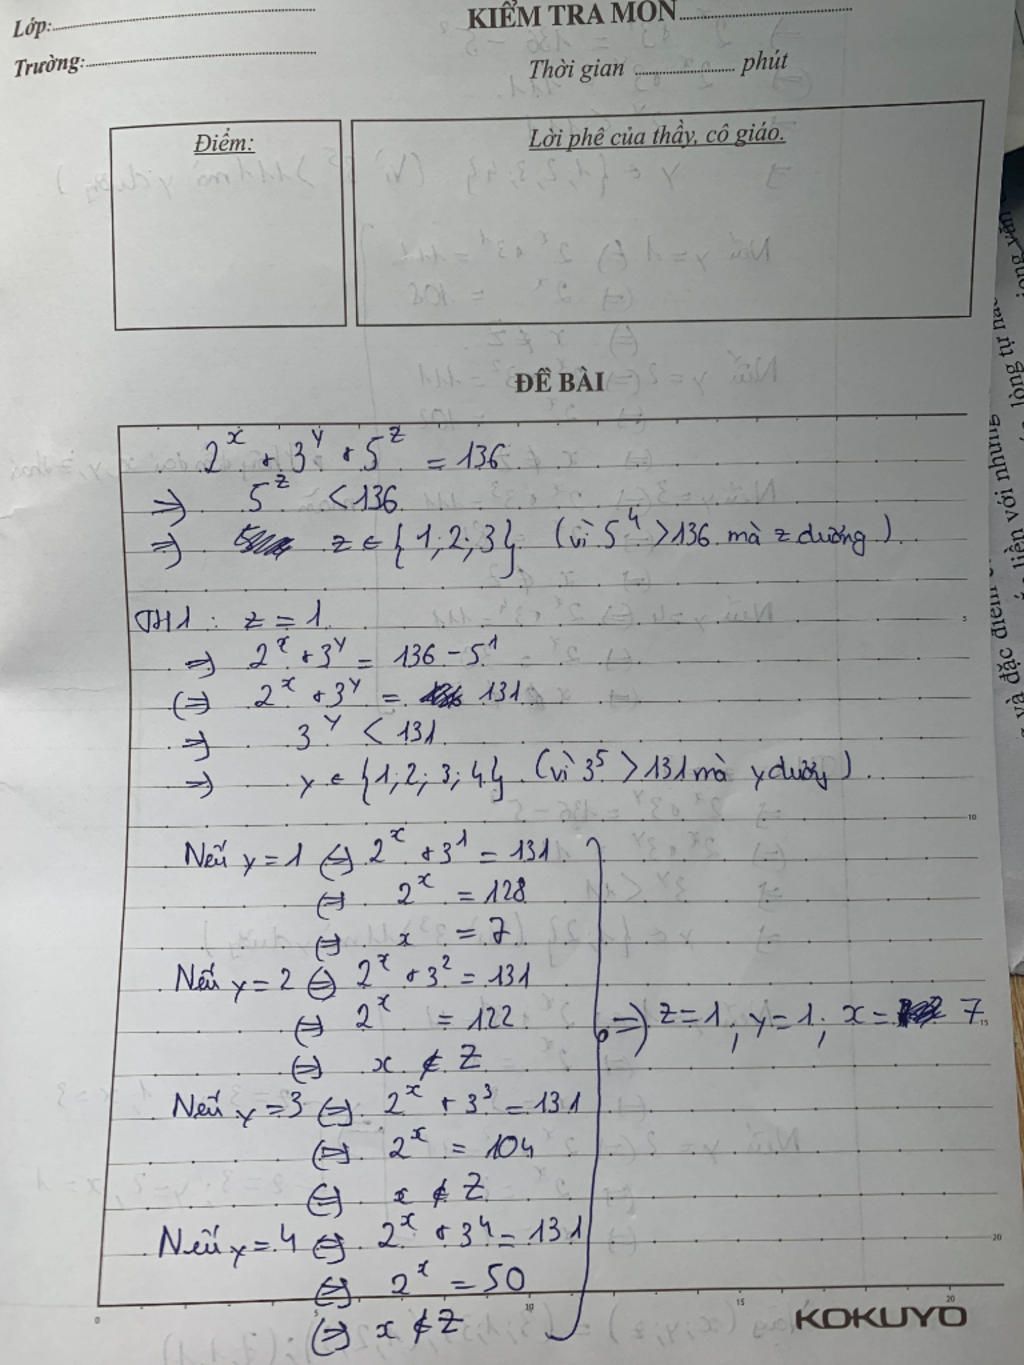 Lớp:
Trường:
KIỂM TRA MÔN
Thời gian phút
Điểm:
Lời phê của thầy, cô giáo.
ĐỀ BÀI
2^x + 3^y + 5^z = 136
=> 5^z < 136
=> z ∈ {1; 2; 3}. (vì 5^4 > 136 mà z dương)
TH1: z = 1
=> 2^x + 3^y = 136 - 5^1
(=) 2^x + 3^y = 131
=> 3^y < 131
=> y ∈ {1; 2; 3; 4} (vì 3^5 > 131 mà y dương)
Nếu y = 1 (=) 2^x + 3^1 = 131
(=) 2^x = 128
(=) x = 7
Nếu y = 2 (=) 2^x + 3^2 = 131
(=) 2^x = 122
=> z = 1; y = 1; x = 7
(=) x ∉ Z
Nếu y = 3 (=) 2^x + 3^3 = 131
(=) 2^x = 104
(=) x ∉ Z
Nếu y = 4 (=) 2^x + 3^4 = 131
(=) 2^x = 50
(=) x ∉ Z
KOKUYO